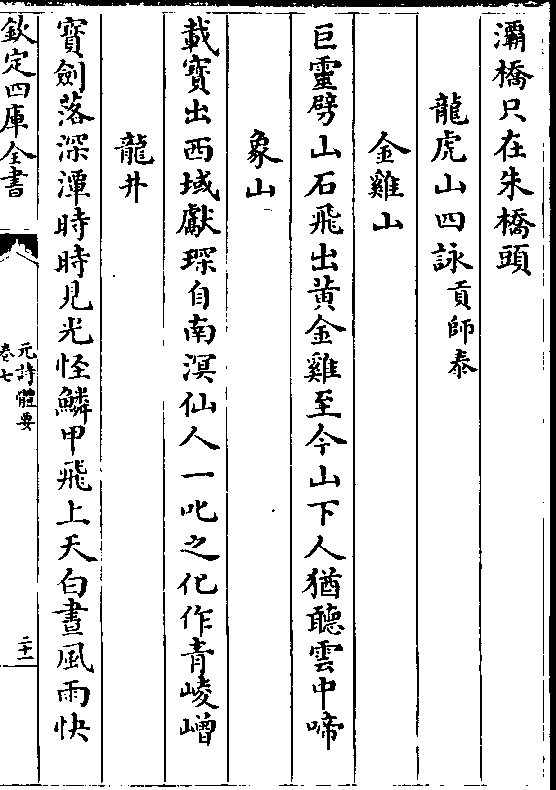 灞橋只在朱橋頭
龍虎山四詠貢師泰
金雞山
巨靈劈山石飛出黄金雞至今山下人猶聽雲中啼
象山
載寶出西域獻琛自南溟仙人一叱之化作青崚嶒
龍井
寶劍落深潭時時見光怪鱗甲飛上天白晝風雨快
欽定四庫全書
元詩體要
卷七
二十一